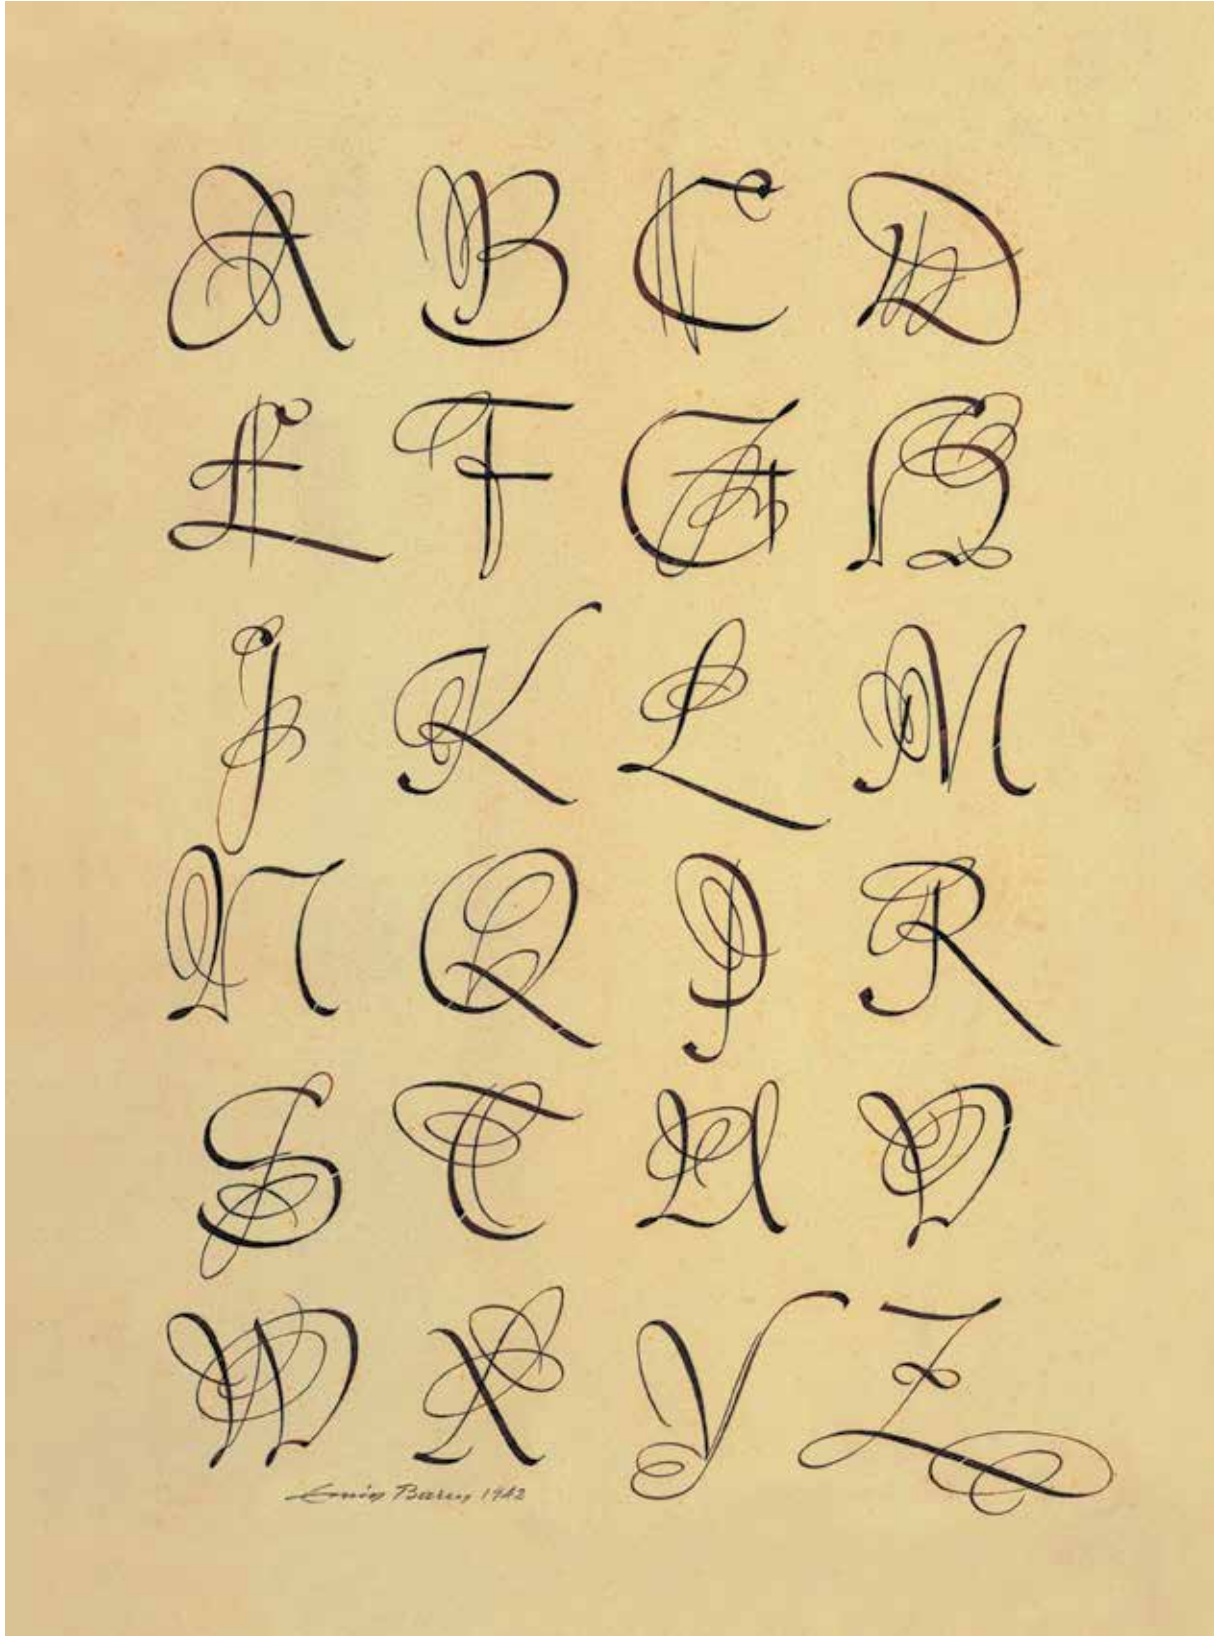 A B C D
E F G H
J K L M
N Q P R
S T U V
W X Y Z
1942